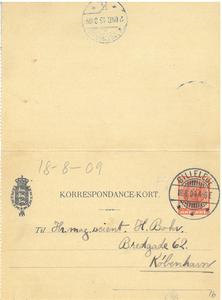 18-8-09
GILLELEJE
KORRESPONDANCE-KORT.
Til Hr. mag. scient. H. Bohr.
Bredgade 62.
København